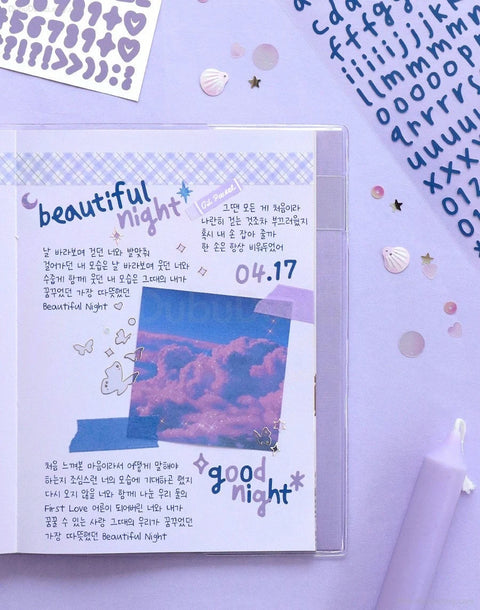 beautiful
night
Oui Pocket
그땐 모든 게 처음이라
나란히 걷는 것조차 부끄러웠지
혹시 내 손 잡아 줄까
한 손은 항상 비워두었어
04.17
날 바라보며 걷던 너와 발맞춰
걸어가던 내 모습은 날 바라보며 웃던 너와
수줍게 함께 웃던 내 모습은 그때의 내가
꿈꾸었던 가장 따뜻했던
Beautiful Night
처음 느껴본 마음이라서 어떻게 말해야
하는지 조심스런 너의 모습에 기대하곤 했지
다시 오지 않을 너와 함께 나눈 우리 둘의
First Love 어른이 되어버린 너와 내가
꿈꿀 수 있는 사랑 그때의 우리가 꿈꾸었던
가장 따뜻했던 Beautiful Night
good
night
567891
56789+
!!!!???
cdaa
fffgg
iiiiijjjk
llmmmmm
ooooop
qrrrrs
uuuuu
xxxx
012
01